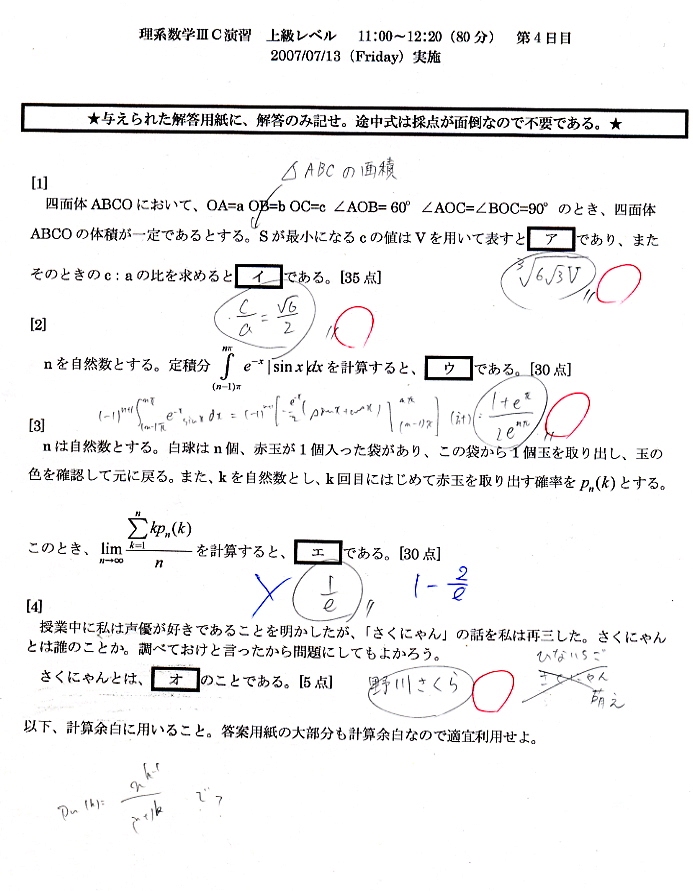 理系数学ⅢC演習　上級レベル　11:00～12:20（80分）　第4日目
2007/07/13（Friday）実施
★与えられた解答用紙に、解答のみ記せ。途中式は採点が面倒なので不要である。★
△ABCの面積
[1]
四面体 ABCO において、OA=a OB=b OC=c ∠AOB= 60° ∠AOC=∠BOC=90° のとき、四面体
ABCO の体積が一定であるとする。S が最小になる c の値は V を用いて表すと ア であり、また
そのときの c : a の比を求めると イ である。[35 点]
∛(6√3V)
c/a = √6/2
[2]
n を自然数とする。定積分 ∫_{(n-1)π}^{nπ} e^{-x} |sin x| dx を計算すると、 ウ である。[30 点]
(計) = (1+e^π)/(2e^{nπ})
[3]
n は自然数とする。白球は n 個、赤玉が 1 個入った袋があり、この袋から 1 個玉を取り出し、玉の
色を確認して元に戻る。また、k を自然数とし、k 回目にはじめて赤玉を取り出す確率を p_n(k) とする。
このとき、 lim_{n→∞} (∑_{k=1}^{n} kp_n(k))/n を計算すると、 エ である。[30 点]
1/e
1 - 2/e
[4]
授業中に私は声優が好きであることを明かしたが、「さくにゃん」の話を私は再三した。さくにゃん
とは誰のことか。調べておけと言ったから問題にしてもよかろう。
さくにゃんとは、 オ のことである。[5 点]
野川さくら
ひないちご
さくにゃん
萌え
以下、計算余白に用いること。答案用紙の大部分も計算余白なので適宜利用せよ。